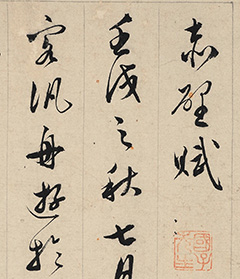 赤壁賦
壬戌之秋七月
客汎舟遊於